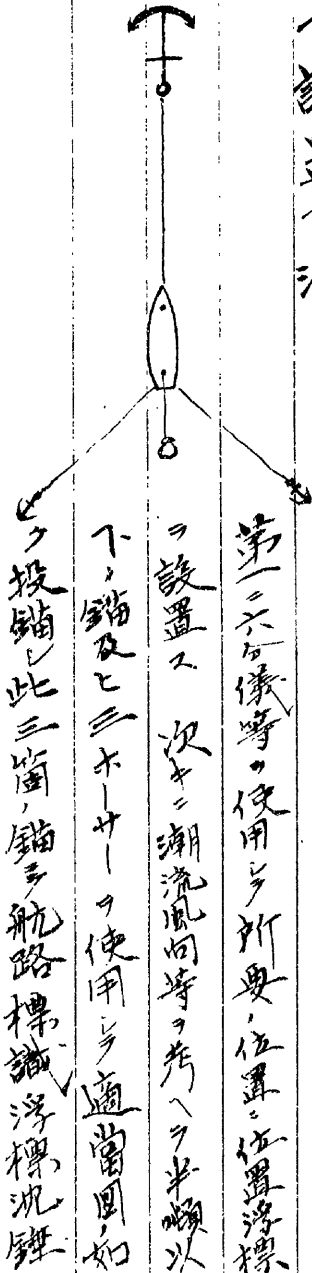 設置方法
第一ニ六分儀等ヲ使用シテ所要ノ位置ニ位置浮標
ヲ設置ス 次キニ潮流風向等ヲ考ヘテ半噸以
下ノ錨及ヒ三ホーサーヲ使用シテ適當圖ノ如
ク投錨シ此三箇ノ錨ヲ航路標識浮標沈錘